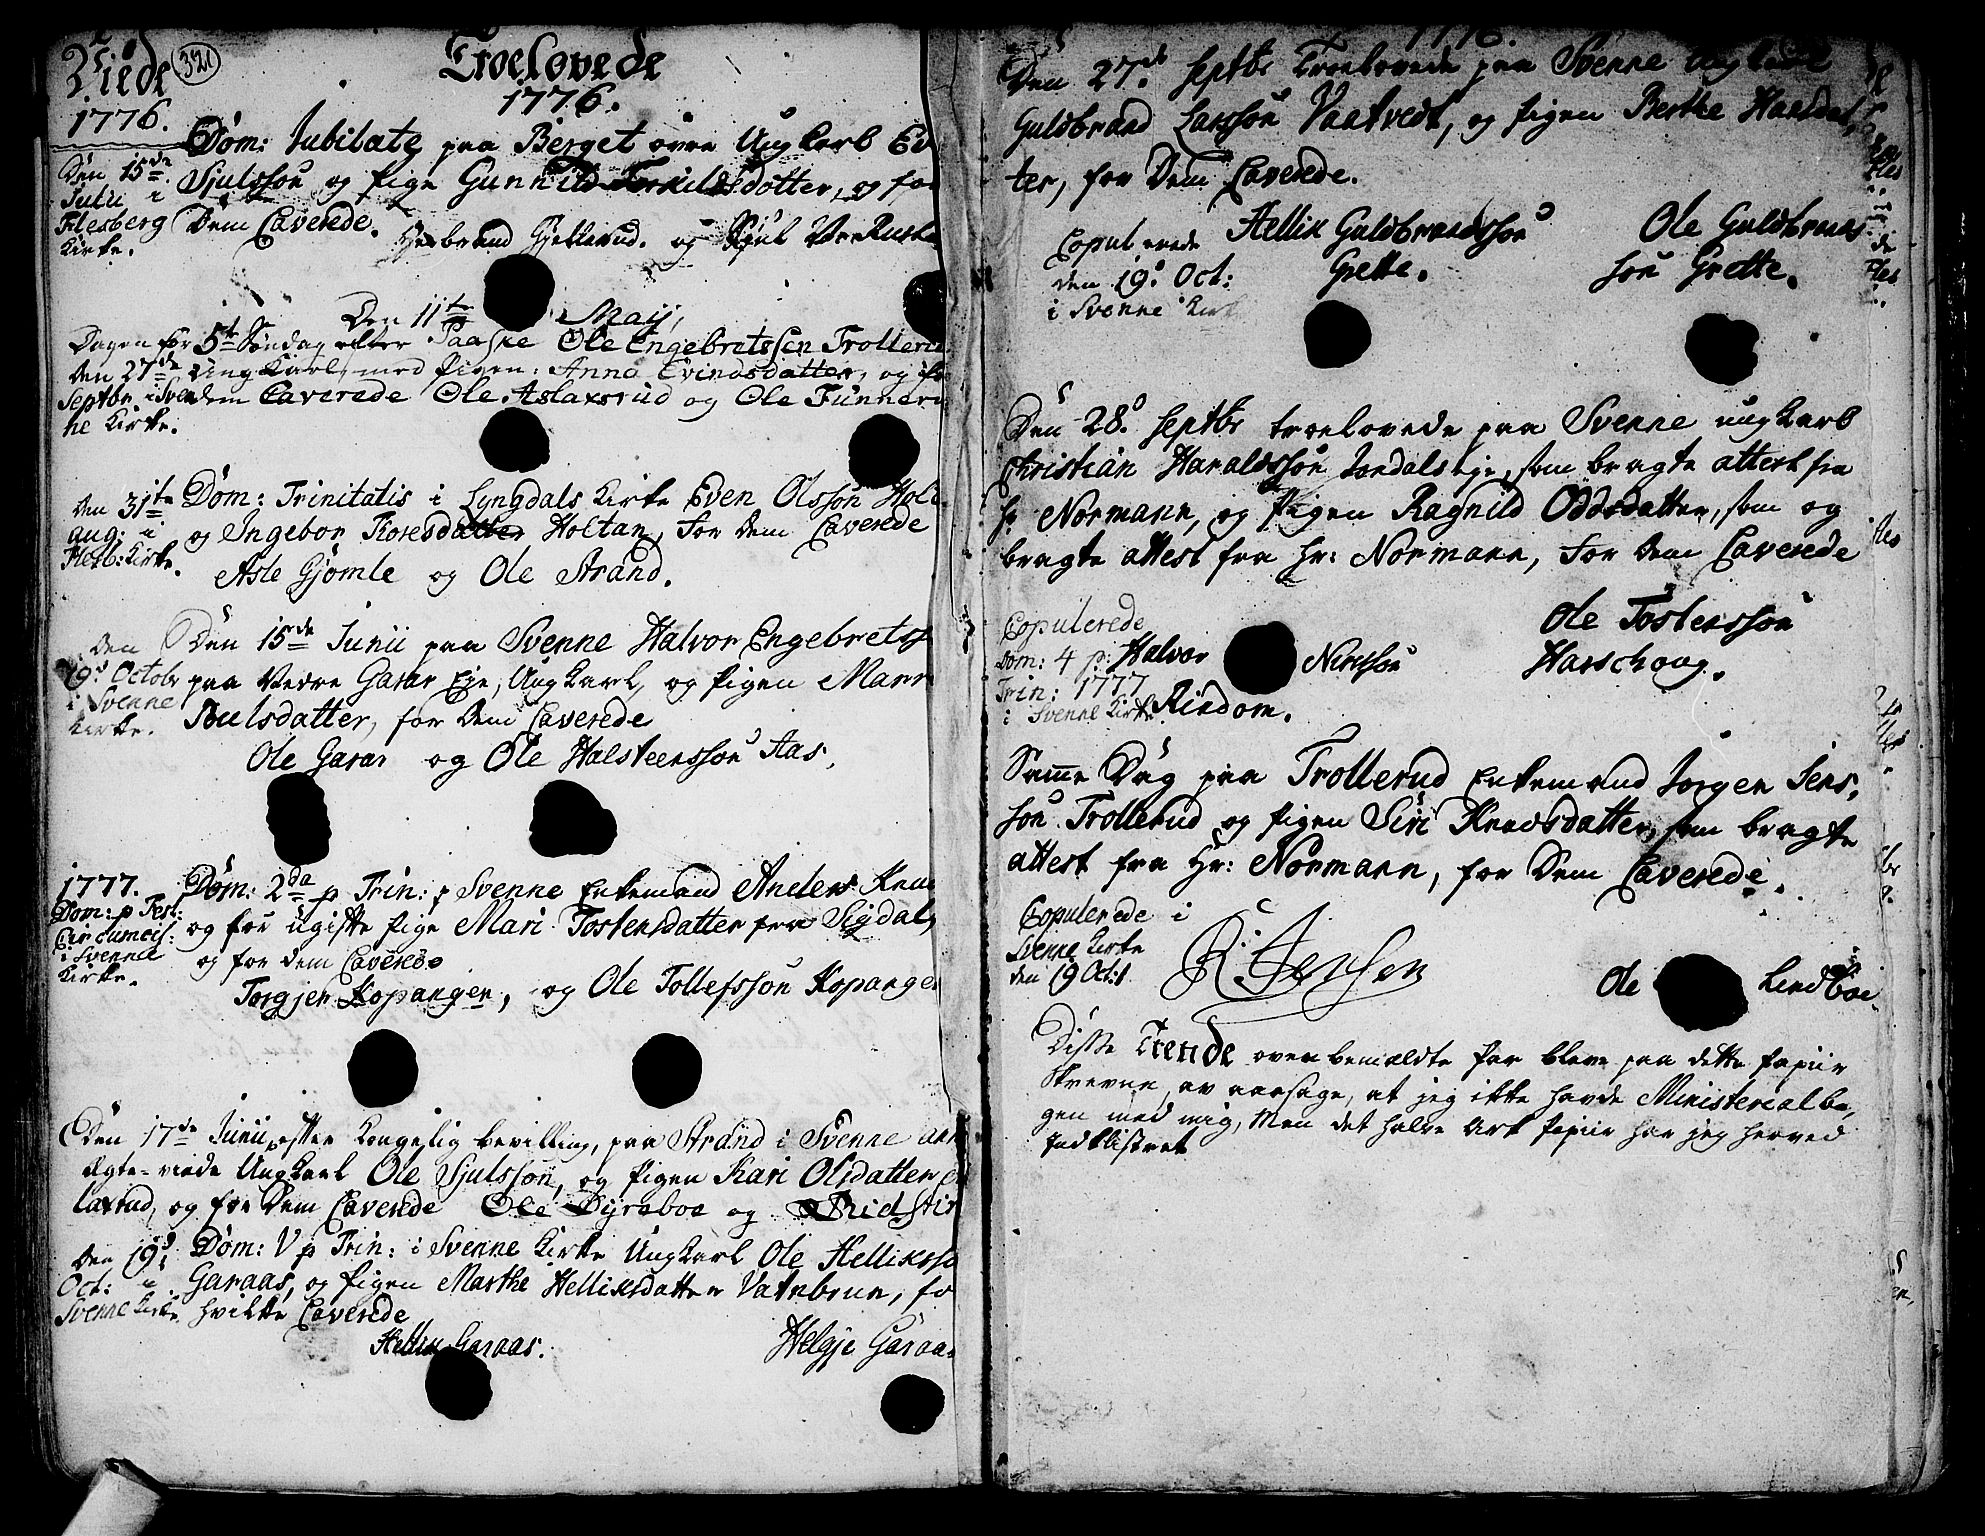 Viede
321
Troelovede
1776.
1776.
Dom: Jubilate paa Berget övre Ungkarl Ev
Den 15de
Julii i
Flesberg
Kirke.
Sjulssön og Pige Gunnild Torkildsdotter, og for
Dem Caverede.
Herbrand Gjellerud. og Sjul
Den 11te Maij,
Dagen for 5te Söndag efter Paaske Ole Engebretssen Trolleru
Den 27de
Septbr i Sven
ne Kirke.
Ungkarl, med Pigen: Anna Evindsdatter, og for
dem Caverede Ole Aslaksrud og Ole Funneru
Den 31te
aug: i
Flesb: Kirke.
Dom: Trinitatis i Lyngdals Kirke Even Olssön Holt
og Ingebor Toresdatter Holtan, for Dem Caverede
Asle Gjömle og Ole Strand.
Den
19d Octobr
i Svenne
Kirke.
Den 15de Junii paa Svenne Halvor Engebretss
paa Vedre Garar Eje, Ungkarl, og Pigen Marr
Poulsdatter, for Dem Caverede
Ole Garar og Ole Halsteenssön Aas,
1777.
Dom: p Fest:
Circumcis:
i Svenne
Kirke.
Dom: 2da p Trin: p Svenne Enkemand Anders Knu
og for ugifte Pige Mari Tostensdatter fra Sigdal,
og for dem Caverede
Torgjer Kopangen, og Ole Tollefssön Kopangen
Den 17de Junii, efter Kongelig bevilling, paa Strand i Svenne
ægte-viede Ungkarl Ole Sjulssön, og Pigen Kari Olsdatter
laxrud, og for Dem Caverede Ole Dyreboe og
Den 19d
Oct: i
Svenne Kirke
Dom: V p Trin: i Svenne Kirke Ungkarl Ole Hellikssö
Garaas, og Pigen Marthe Helliksdatter Vatnbrun, fo
hvilke Caverede
Hellik Garaas. Helgje Garaas
1776.
Den 27d Septbr Troelovede paa Svenne Ungkarl
Guldbrand Larssön Vaatvedt, og Pigen Berthe Haalsdat
ter, for Dem Caverede.
Copulerede
den 19d Oct:
i Svenne Kirk
Hellik Guldbrandssön
Grette.
Ole Guldbrands
sön Grette.
Den 28d Septbr troelovede paa Svenne ungkarl
Christian Haraldssön Jondals eje, som bragte attest fra
hr Normann, og Pigen Ragnild Oddsdatter, som og
bragte attest fra Hr: Normann, for Dem Caverede
Copulerede
Dom: 4 p:
Trin: 1777
i Svenne Kirke
Halvor Nielssön
Rindom.
Ole Tostenssön
Haschoug.
Samme Dag paa Trollerud Enkemand Jorgen Jens,
sön Trollerud og Pigen Siri Knudsdatter, som bragte
attest fra Hr: Normann, for Dem Caverede.
Copulerede i
Svenne Kirke
den 19 Oct
Jensen
Ole Lindboe
Disse Trende ovenbemældte Par bleve paa dette Papiir
skrevne, av aarsage, at jeg ikke havde Ministerialbo,
gen med mig, Men det halve Ark Papiir har jeg herved